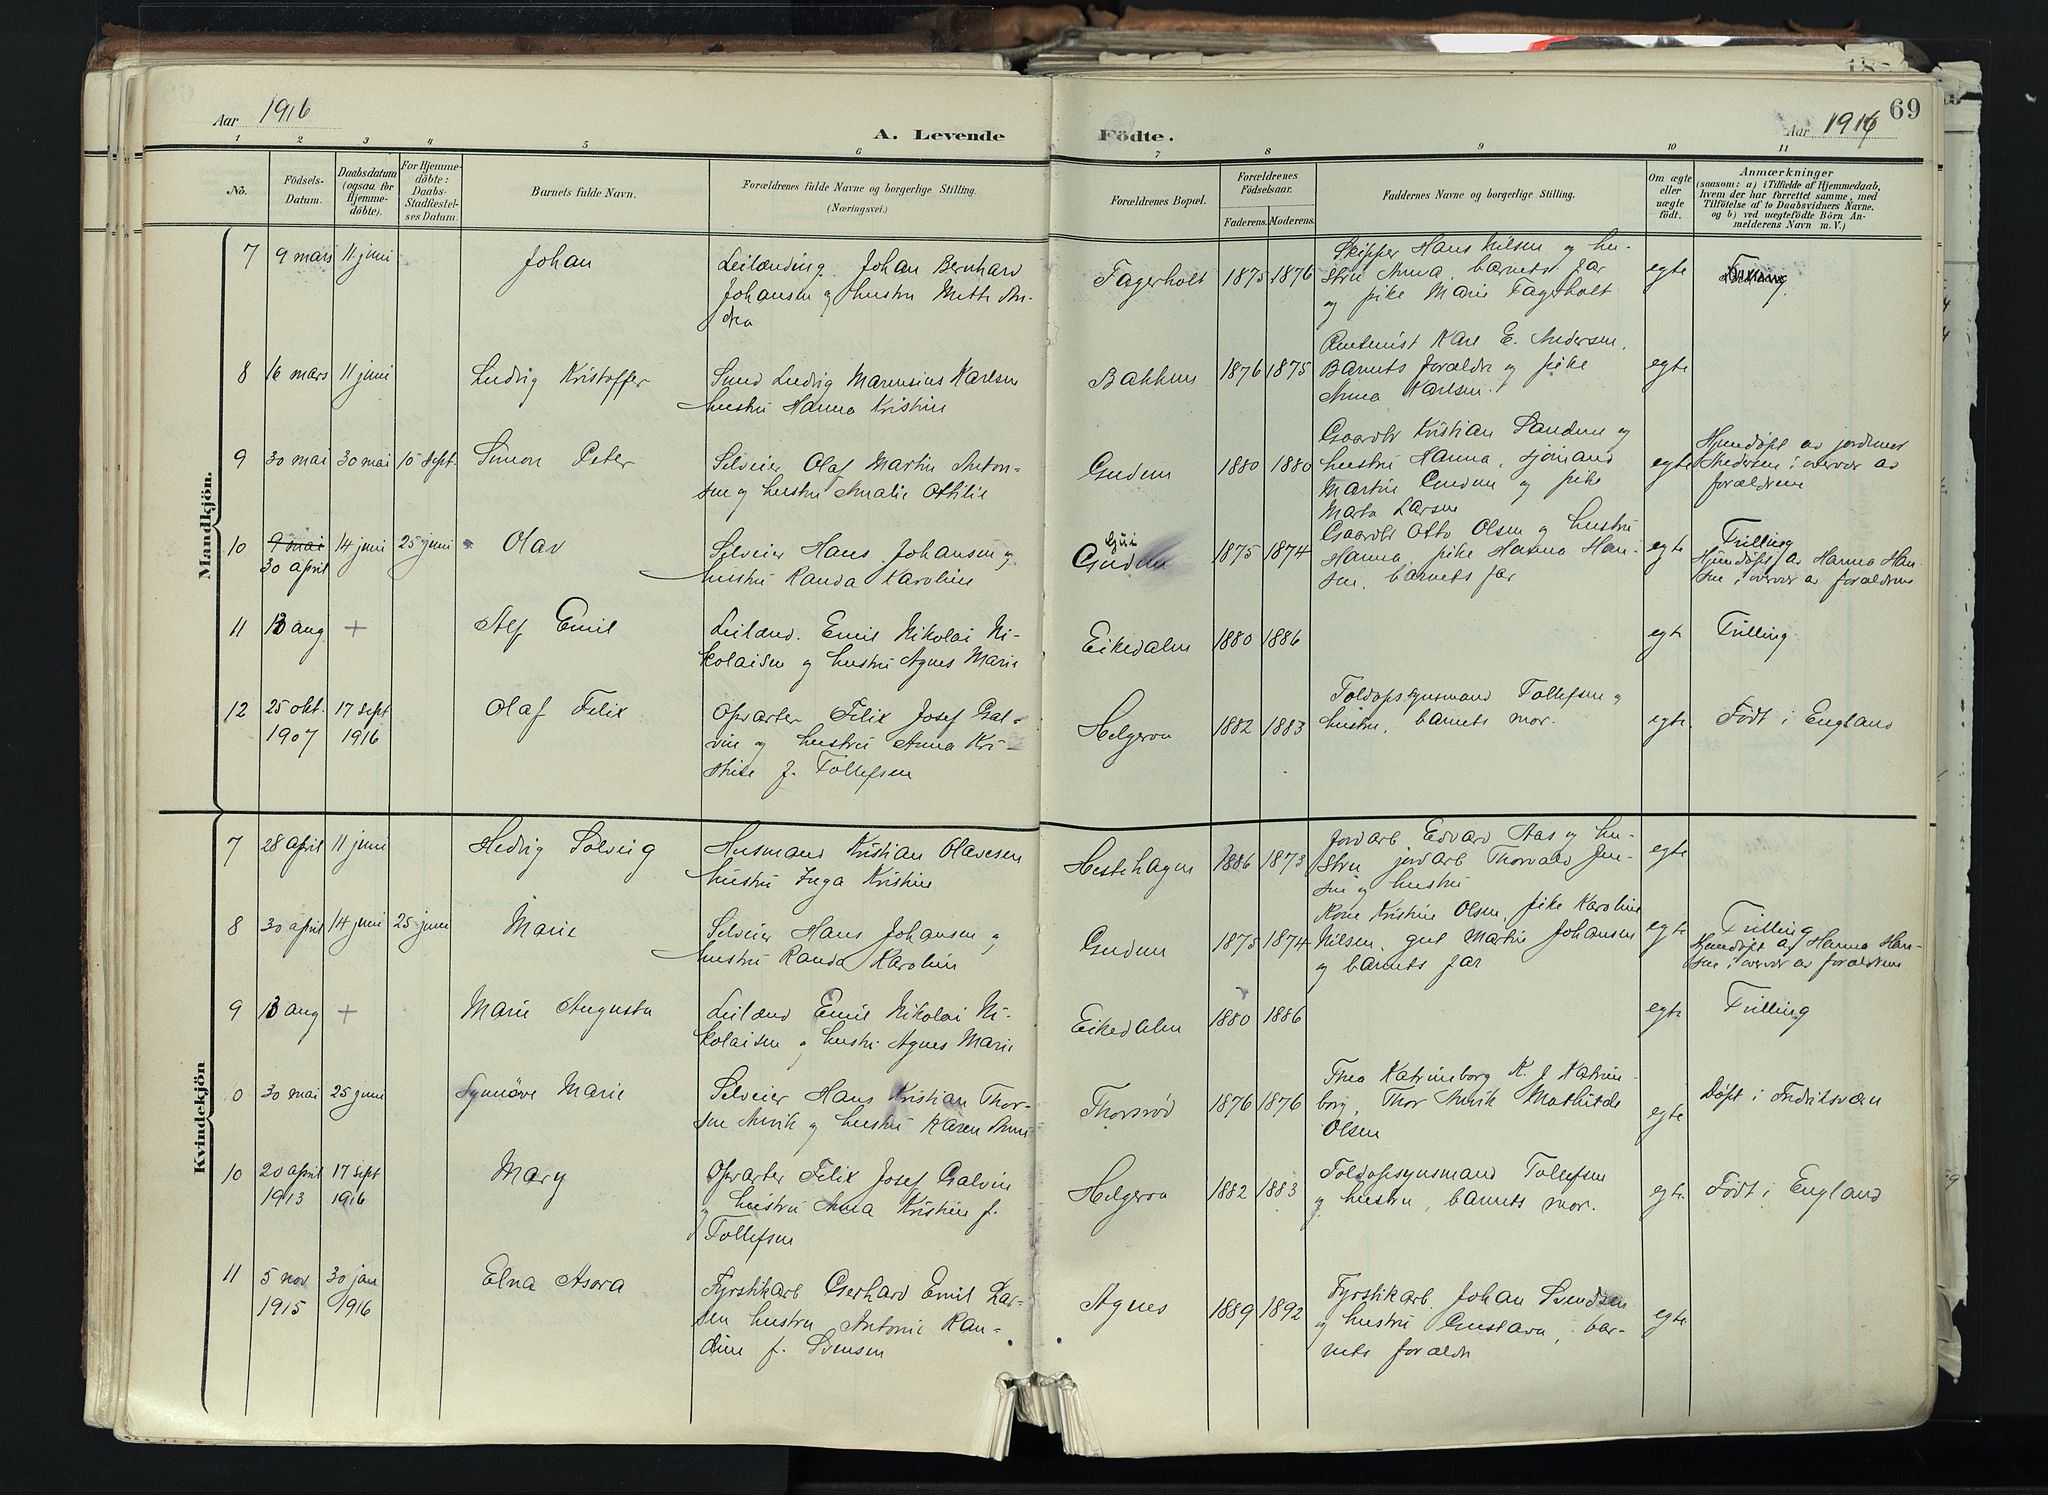 Aar 1916
A. Levende
Födte.
Aar 1916
69
1 2 3 4 5 6 7 8 9 10 11
No.
Födsels-
Datum.
Daabsdatum
(ogsaa for
Hjemme-
döbte).
For Hjemme-
döbte:
Daabs-
Stadfæstel-
ses Datum.
Barnets fulde Navn.
Forældrenes fulde Navne og borgerlige Stilling.
(Næringsvei.)
Forældrenes Bopæl.
Forældrenes
Födselsaar.
Faderens. Moderens.
Faddernes Navne og borgerlige Stilling.
Om ægte
eller
uægte
födt.
Anmærkninger
(saasom: a) i Tilfælde af Hjemmedaab,
hvem der har forrettet samme, med
Tilföielse af to Daabsvidners Navne.
og b) ved uægtefödte Börn An-
melderens Navn m. V.)
Mandkjön.
7 9 mars 11 juni
Johan
Leilænding Johan Bernhard
Johansen og hustru Mette An-
dea
Fagerholt 1875 1876
Skipper Hans Nilsen og hu-
stru Anna, barnets far
og pike Marie Fagerholt
egte
8 16 mars 11 juni
Ludvig Kristoffer
Smed Ludvig Marensius Karlsen
hustru Hanna Kristine
Bakken 1876 1875
Karl E. Andersen,
Barnets forældre og pike
Anna Karlsen.
egte
9 30 mai 30 mai 10 sept.
Simon Peter
Selveier Olaf Martin Anton-
sen og hustru Amalie Othilie
Gudum 1880 1880
Gaardbr Kristian Sandum og
hustru Hanna, sjømand
Martin Gudum og pike
Marta Larsen
egte
Hjemdøpt av jordmor
Andersen i overvær av
forældrene
10 9 mai
30 april
14 juni 25 juni
Olav
Selveier Hans Johansen og
hustru Randa Karoline
Gui
Gudum 1875 1874
Gaardbr Otto Olsen og hustru
Hanna, pike Hanna Han-
sen, barnets far
egte
Tvilling
Hjemdøpt av Hanna Han-
sen i overvær av forældrene
11 13 aug +
Alf Emil
Leilænd. Emil Nikolai Ni-
kolaisen og hustru Agnes Marie
Eikedalen 1880 1886
egte
Tvilling
12 25 okt. 1907
17 sept 1916
Olaf Felix
Opvarter Felix Josef Gal-
vin og hustru Anna Kri-
stine f. Tollefsen
Helgeroa 1882 1883
Toldopsynsmand Tollefsen og
hustru, barnets mor.
egte
Født i England
Kvindekjön
7 28 april 11 juni
Hedvig Solveig
Husmand Kristian Olavesen
hustru Inga Kristine
Hestehagen 1886 1873
Jordarb Edvard Aas og hu-
stru, jordarb Thorvald Jen-
sen og hustru
egte
8 30 april 14 juni 25 juni
Marie
Selveier Hans Johansen og
hustru Randa Karoline
Gudum 1875 1874
Kone Kristine Olsen, pike Karoline
Nilsen, gut Martin Johansen
og barnets far
egte
Tvilling
Hjemdøpt av Hanna Han-
sen i overvær av forældrene
9 13 aug +
Marie Augusta
Leilænd Emil Nikolai Ni-
kolaisen og hustru Agnes Marie
Eikedalen 1880 1886
egte
Tvilling
0 30 mai 25 juni
Synnöve Marie
Selveier Hans Kristian Thor-
sen Anvik og hustru Karen
Thorsrød 1876 1876
Thea Katrineborg K. J. Katrine-
borg, Thor Anvik Mathilde
Olsen
egte
Døpt i Fredriksværn
10 20 april 1913
17 sept 1916
Mary
Opvarter Felix Josef Galvin
og hustru Anna Kristine f.
Tollefsen
Helgeroa 1882 1883
Toldopsynsmand Tollefsen
og hustru, barnets mor.
egte
Født i England
11 5 nov 1915
30 jan 1916
Elna Asora
Fyrstikarb Gerhard Emil Lar-
sen hustru Antonie Ran-
dine f. Svensen
Agnes 1889 1892
Fyrstikarb. Johan Svendsen
og hustru Gustava, bar-
nets forældre
egte